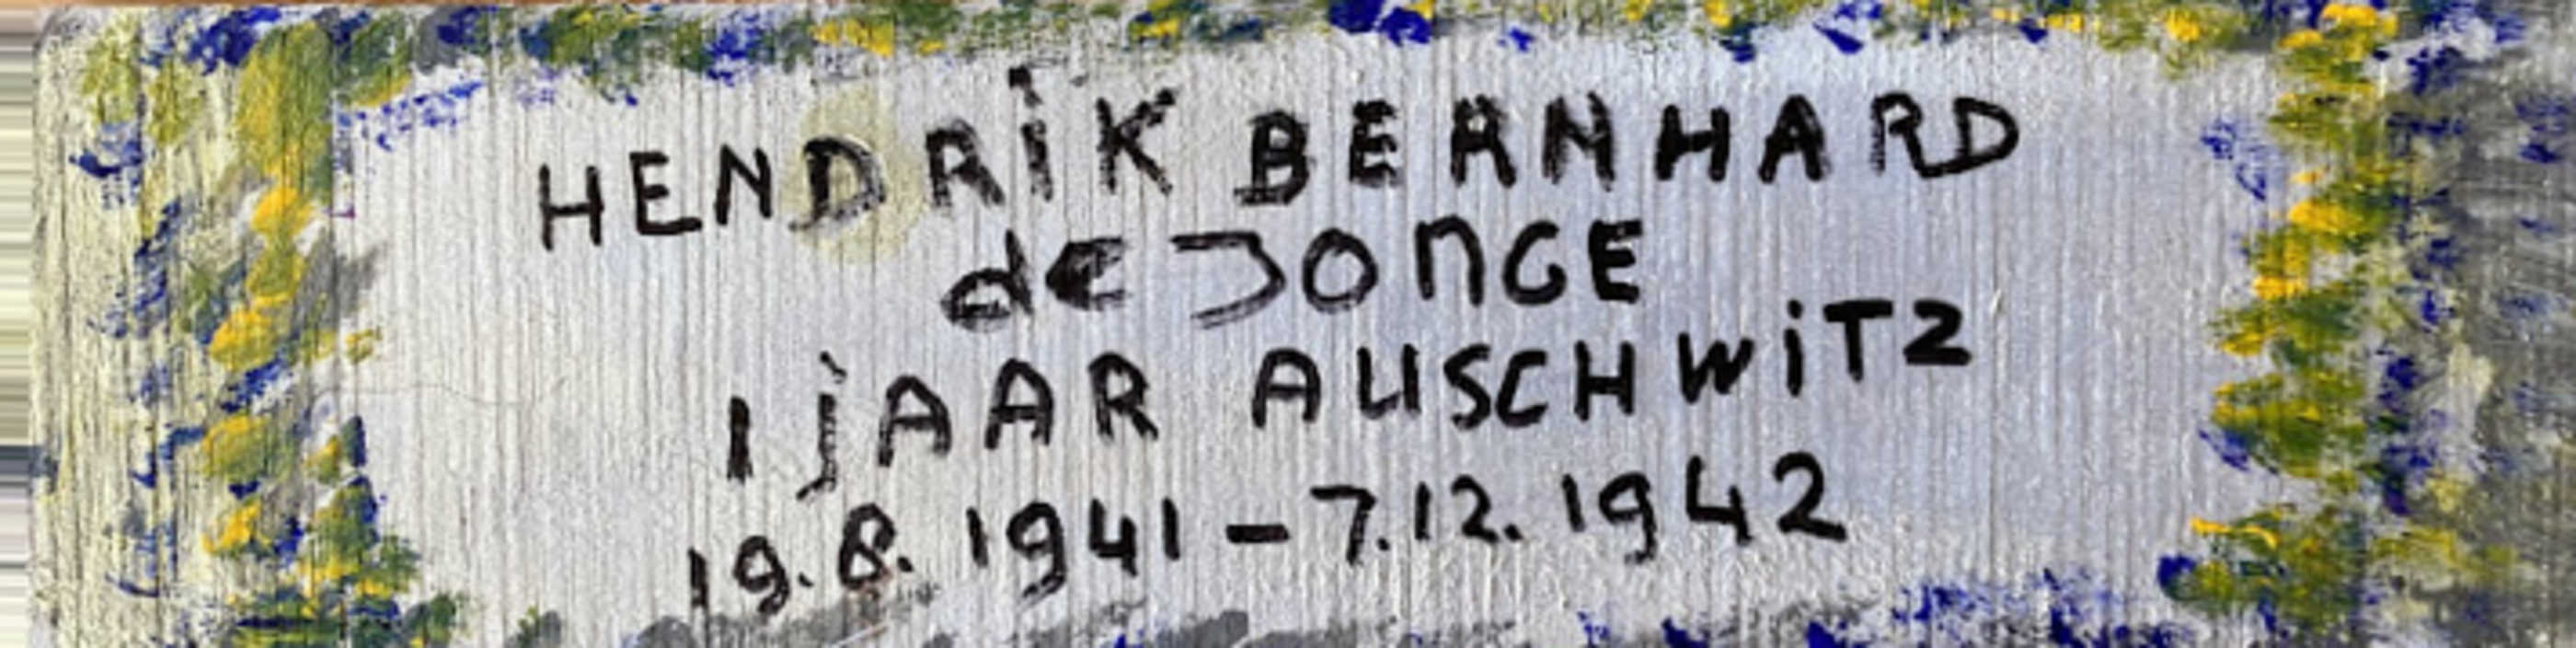 HENDRiK BERNHARD
de JonGE
1 jAAR AUSCHWiTZ
19.8.1941 - 7.12.1942